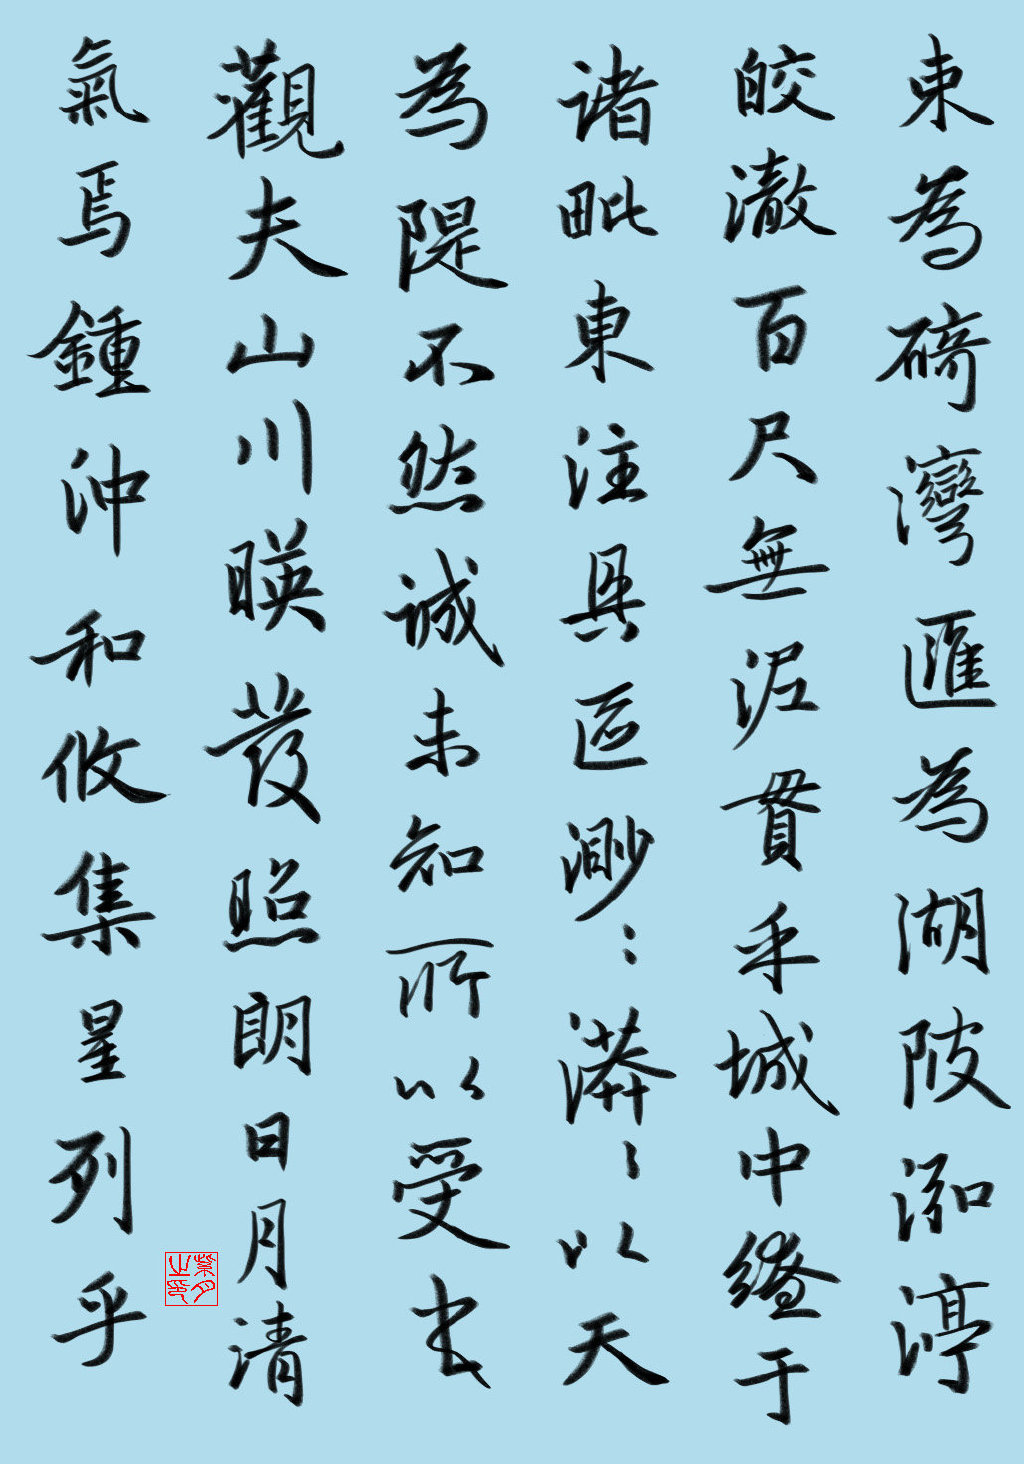 東為碕灣匯為湖陂泓渟
皎澈百尺無泥貫乎城中繚于
諸毗東注具區渺〻漭〻以天
為隄不然誠未知所以受
觀夫山川暎發照朗日月清
氣焉鍾沖和攸集星列乎